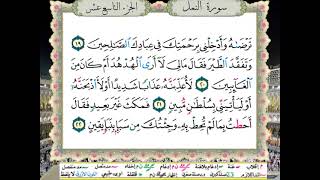 سورة النمل
الجزء التاسع عشر
تَرْضَىٰهُ وَأَدْخِلْنِى بِرَحْمَتِكَ فِى عِبَادِكَ ٱلصَّٰلِحِينَ ١٩
وَتَفَقَّدَ ٱلطَّيْرَ فَقَالَ مَالِىَ لَآ أَرَى ٱلْهُدْهُدَ أَمْ كَانَ مِنَ
ٱلْغَآئِبِينَ ٢٠ لَأُعَذِّبَنَّهُۥ عَذَابًا شَدِيدًا أَوْ لَأَا۟ذْبَحَنَّهُۥٓ
أَوْ لَيَأْتِيَنِّى بِسُلْطَٰنٍ مُّبِينٍ ٢١ فَمَكَثَ غَيْرَ بَعِيدٍ فَقَالَ
أَحَطتُ بِمَا لَمْ تُحِطْ بِهِۦ وَجِئْتُكَ مِن سَبَإٍۭ بِنَبَإٍ يَقِينٍ ٢٢